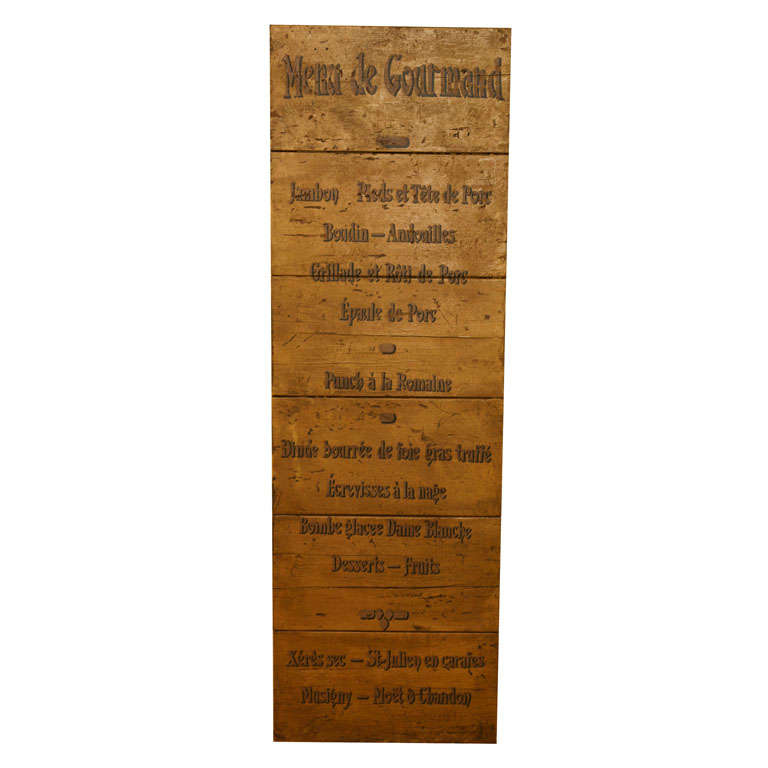 Menu de Gourmand
Jambon Pieds et Tête de Porc
Boudin — Andouilles
Grillade et Rôti de Porc
Épaule de Porc
Punch à la Romaine
Dinde bourrée de foie gras truffé
Écrevisses à la nage
Bombe glacee Dame Blanche
Desserts — Fruits
Xérès sec — St-Julien en carafes
Musigny — Moët & Chandon